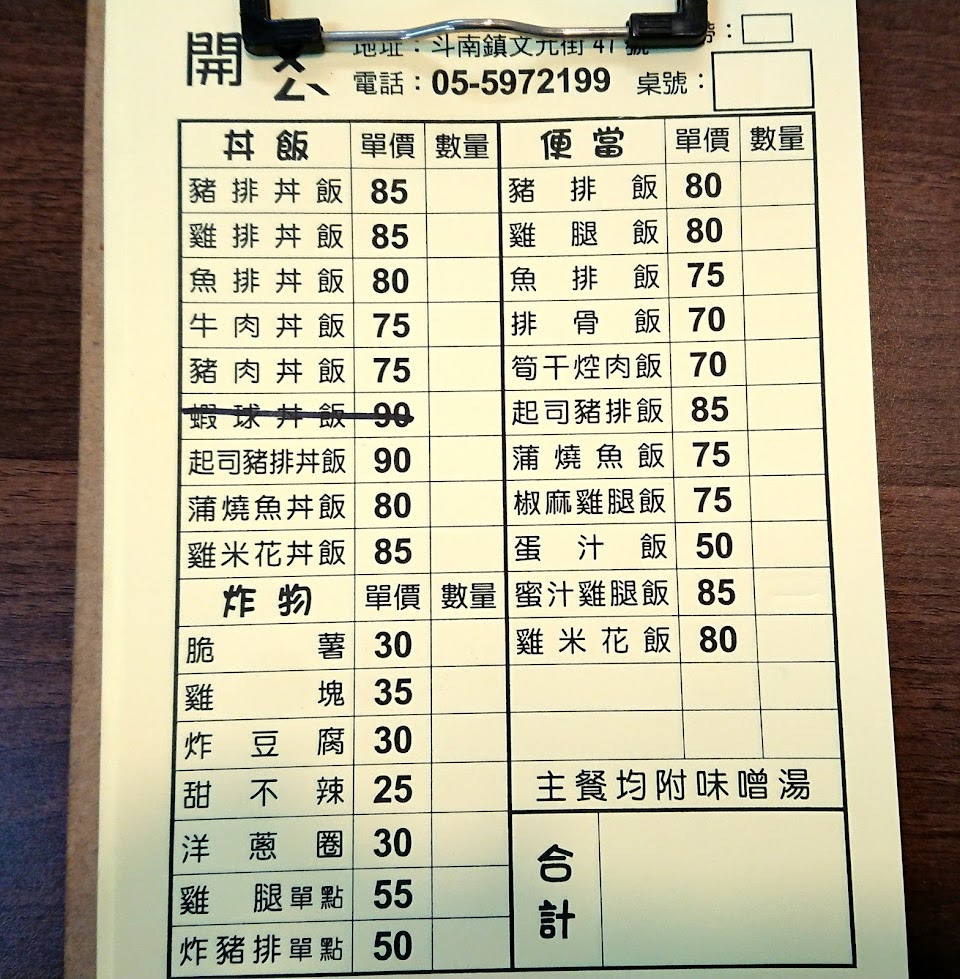 開
地址：斗南鎮文元街 47 號
電話：05-5972199 桌號：
丼飯 單價 數量
豬排丼飯 85
雞排丼飯 85
魚排丼飯 80
牛肉丼飯 75
豬肉丼飯 75
蝦球丼飯 90
起司豬排丼飯 90
蒲燒魚丼飯 80
雞米花丼飯 85
炸物 單價 數量
脆薯 30
雞塊 35
炸豆腐 30
甜不辣 25
洋蔥圈 30
雞腿單點 55
炸豬排單點 50
便當 單價 數量
豬排飯 80
雞腿飯 80
魚排飯 75
排骨飯 70
筍干焢肉飯 70
起司豬排飯 85
蒲燒魚飯 75
椒麻雞腿飯 75
蛋汁飯 50
蜜汁雞腿飯 85
雞米花飯 80
主餐均附味噌湯
合計